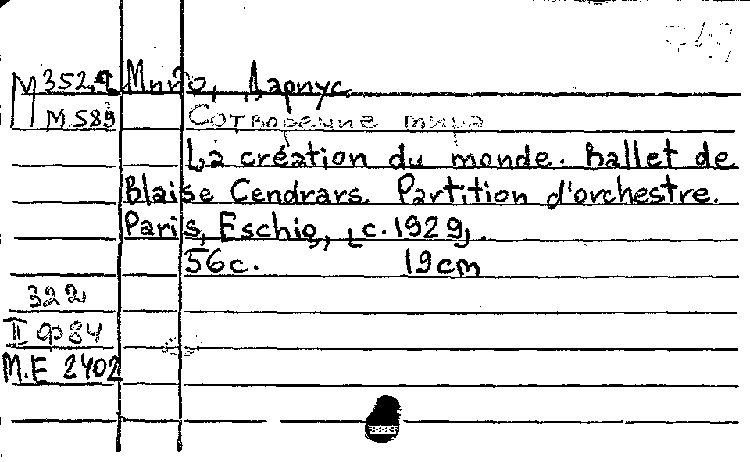 М 352.9 Мийо, Дариус.
М 589 Сотворение мира
La création du monde. Ballet de
Blaise Cendrars. Partition d'orchestre.
Paris, Eschig, [c.1929].
56с. 19cm
322
II ф 84
М.Е 2402